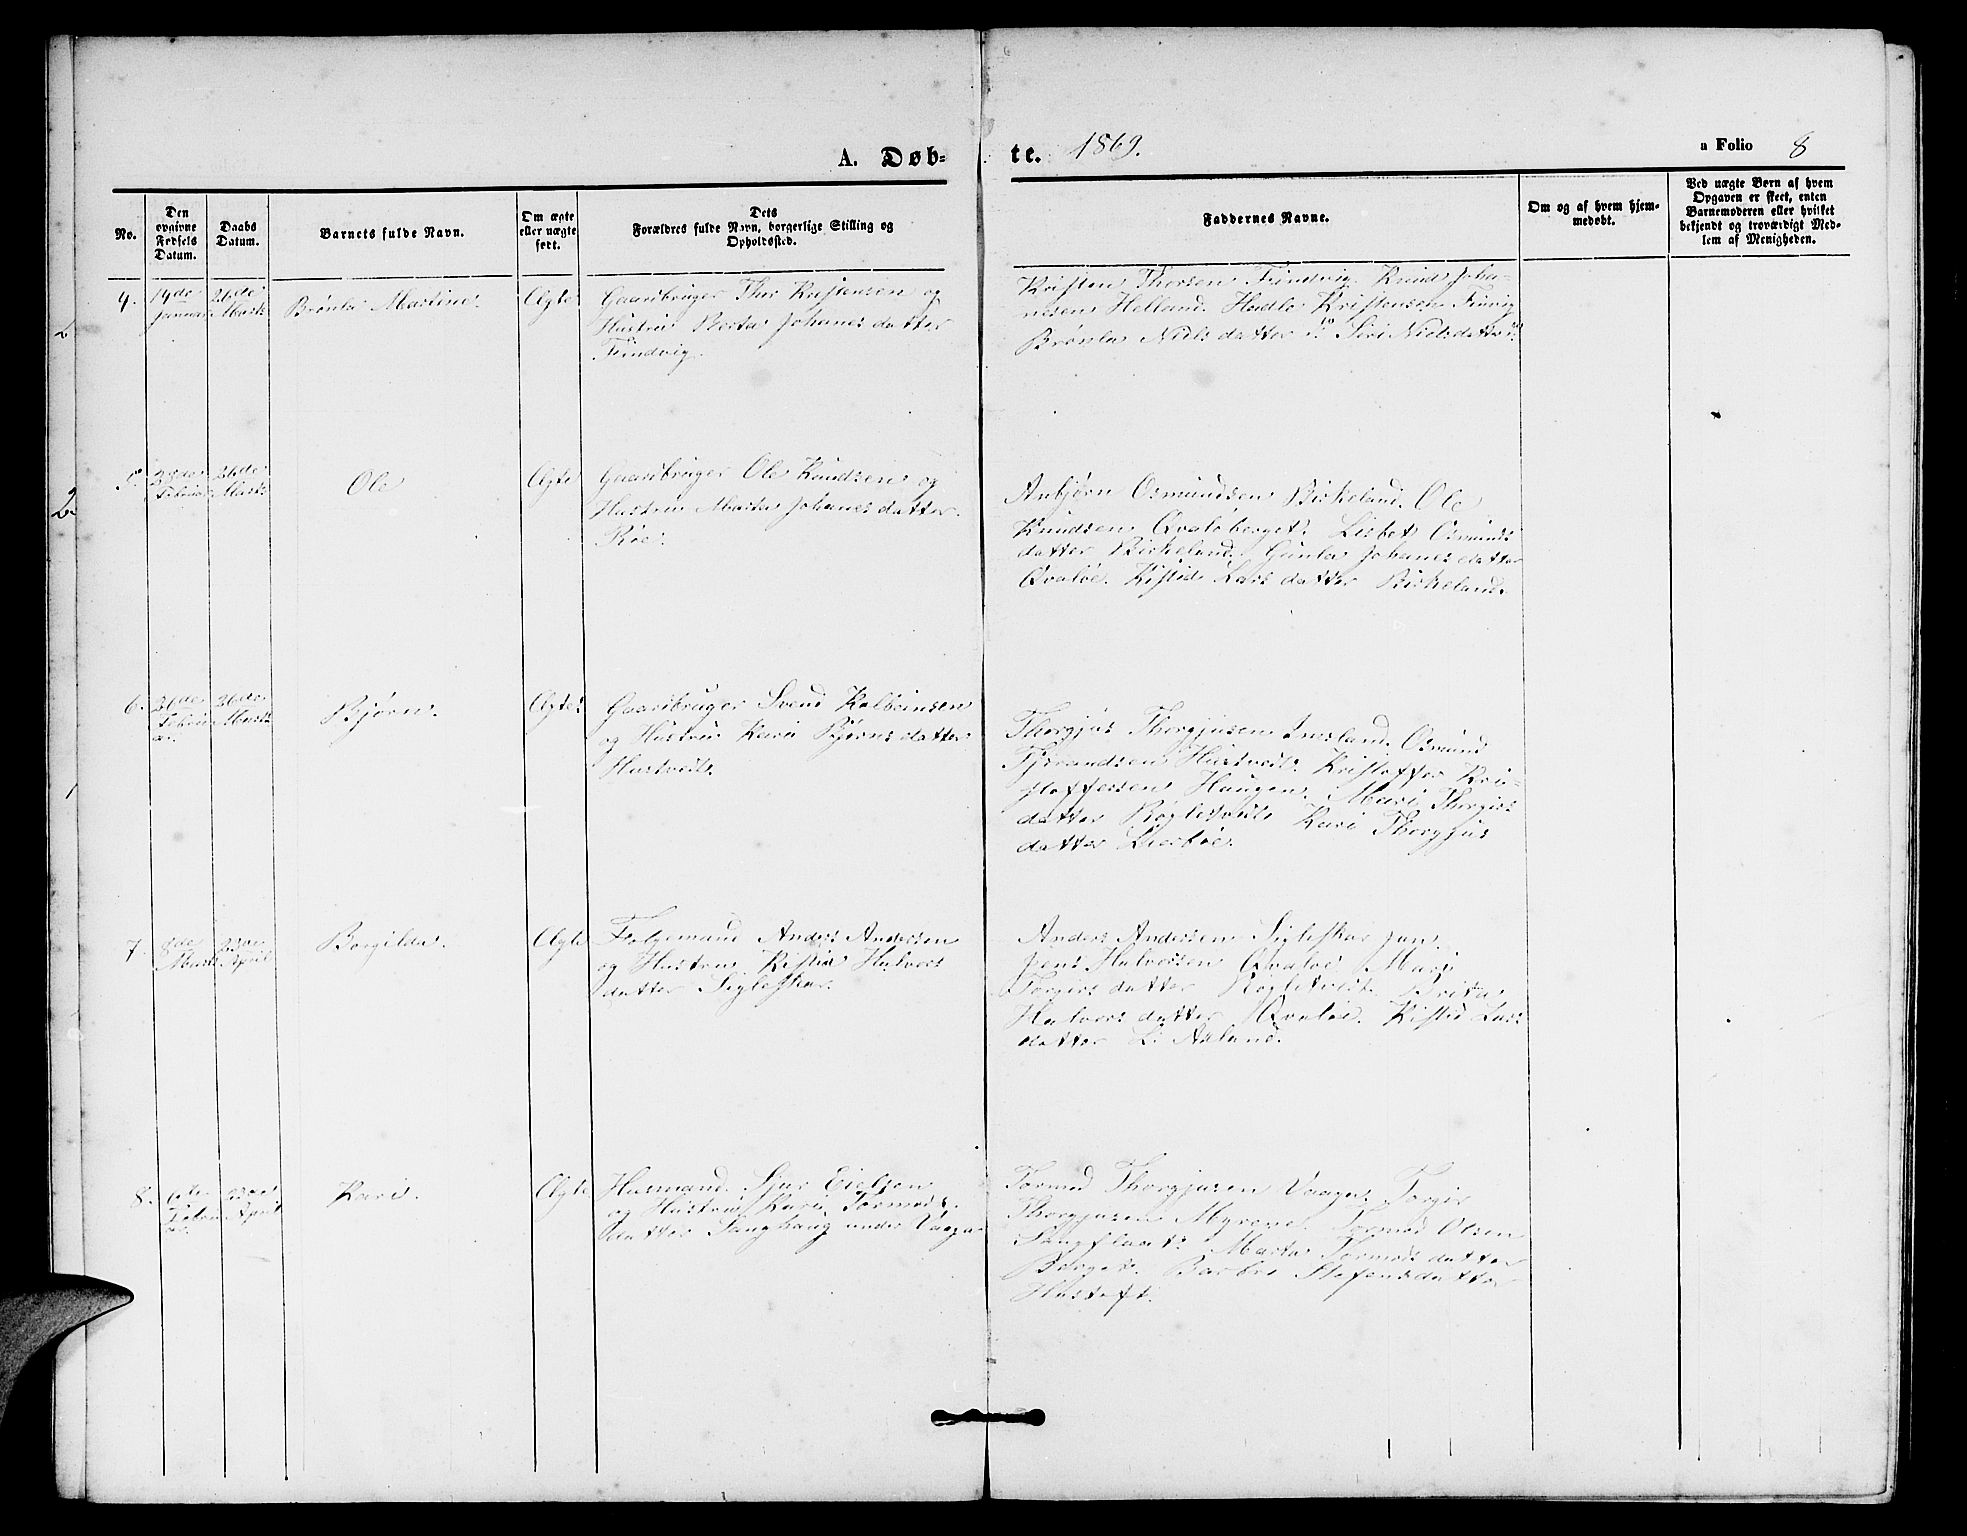 A. Døb- te. 1869. a Folio 8
No.
Den opgivne Fødsels Datum.
Daabs Datum.
Barnets fulde Navn.
Om ægte eller uægte født.
Dets Forældres fulde Navn, borgerlige Stilling og Opholdssted.
Faddernes Navne.
Om og af hvem hjemmedøbt.
Ved uægte Børn af hvem Opgaven er skeet, enten Barnemoderen eller hvilket bekjendt og troværdigt Medlem af Menigheden.
4. 14de Januar 26de Marts Brønla Martine. Ægte
Gaardbruger Thor Kristensen og
Hustru Berta Johanesdatter
Findvig.
Kristen Thorsen Findvig. Knud Joha-
nesen Helland. Kristensen Finvig
Brønla Nielsdatter do Siri Nielsdatter do
5. Februar 26de Marts Ole Ægte
Gaardbruger Ole Knudsen og
Hustru Marta Johanesdatter
Røe.
Anbjørn Osmundsen Birkeland. Ole
Knudsen Qvaløberget. Lisbet Osmunds
datter Birkeland. Gunla Johanesdatter
Qvaløe. Kistid Larsdatter Birkeland.
6. 26de Februar. 26de Marts Bjørn. Ægte
Gaardbruger Svend Kolbeinsen
og Hustru Kari Bjørnsdatter
Hustvedt.
Thorgjus Thorgjusen. Osmund
Tjerandsen Hustvedt. Kristoffer Kri-
stoffersen Haugen. Mari Thorgirs
datter Røgletvedt. Kari Thorgjus
datter
7. 8de Marts April Borgilda. Ægte
Folgemand Anders Andersen
og Hustru Kistid Halvors
datter Sigleskar.
Anders Andersen Sigleskar
Jens Halvorsen Qvaløe. Mari
Torgirsdatter Røgletvedt. Brita
Halvorsdatter Qvaløe. Kistid Lars
datter Li Aaland.
8. 6te Februar. April Kari. Ægte
Husmand Sjur Eielsen
og Hustru Kari Tormods-
datter Langhaug under Vaage
Tormod Thorgjusen Vaage. Torgir
Thorgjusen Myrene. Tormod Olsen
Langflaat. Marta Tormodsdatter
Berge. Barbro Stefensdatter
Hustoft.